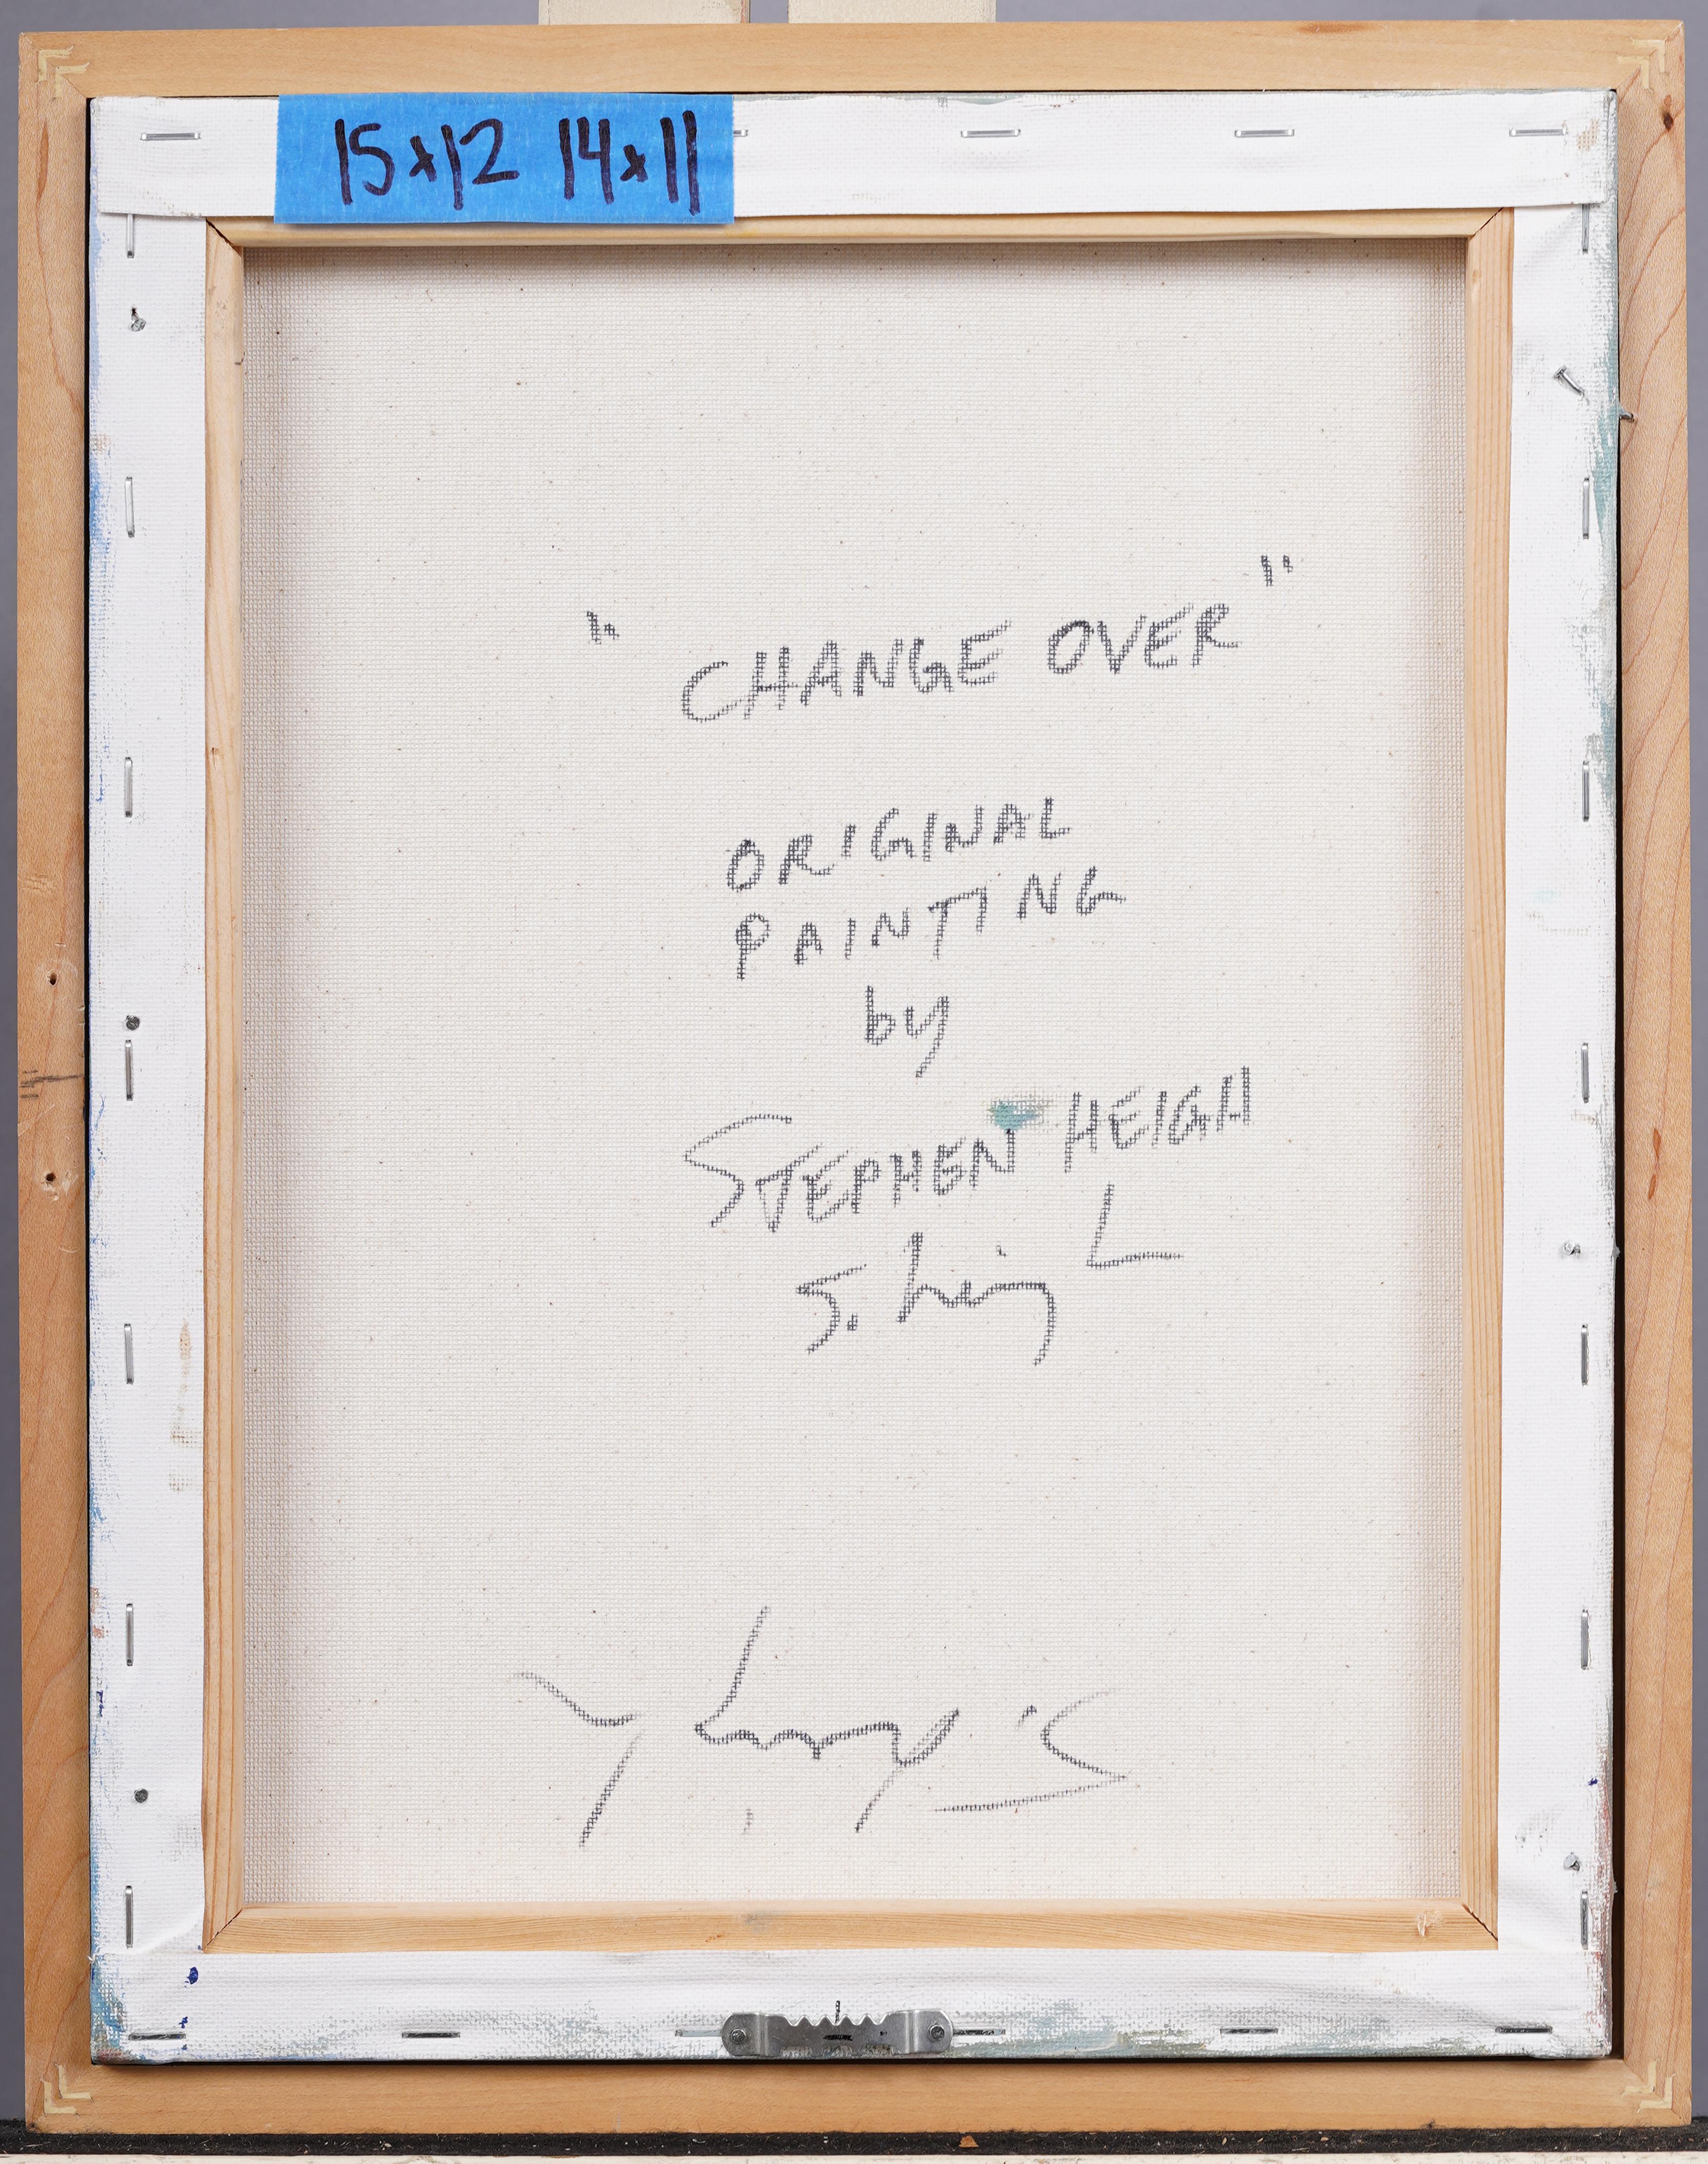 15x12 14x11
" CHANGE OVER "
ORIGINAL
PAINTING
by
STEPHEN HEIGH